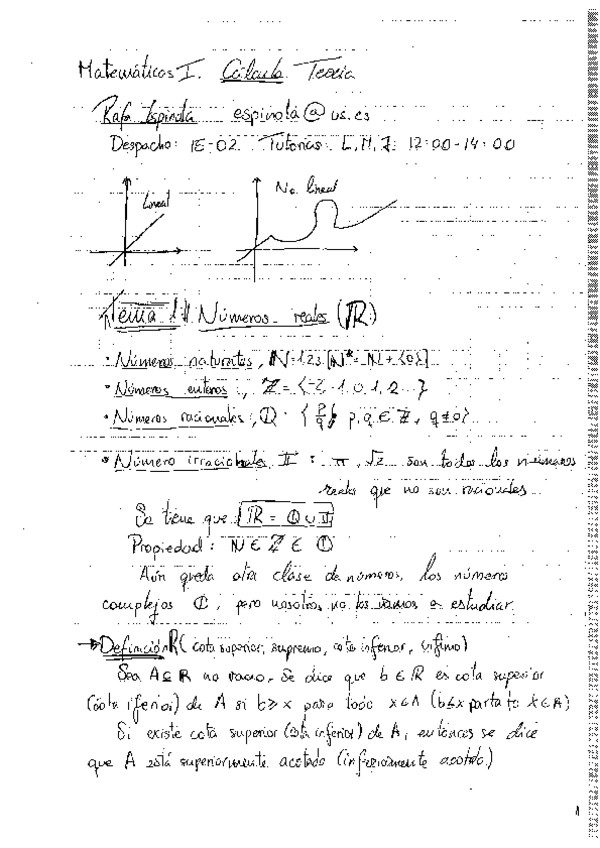 Matemáticas I. Cálculo. Teoría
Rafa Espínola espinola@us.es
Despacho: 1E-02. Tutorías: L, M, J: 12:00-14:00
Lineal
No lineal
Tema 1: Números reales (ℝ)
• Números naturales, ℕ=1,2,3 [ℕ* = ℕ + {0}]
• Números enteros: ℤ = {-2, -1, 0, 1, 2...}
• Números racionales: ℚ = {p/q / p, q ∈ ℤ, q ≠ 0}
• Número irracionales, 𝕀 : π, √2 ... son todos los números
reales que no son racionales
Se tiene que ℝ = ℚ ∪ 𝕀
Propiedad: ℕ ∈ ℤ ∈ ℚ
Aún queda otra clase de números, los números
complejos ℂ, pero nosotros no los vamos a estudiar.
→ Definición (cota superior, supremo, cota inferior, ínfimo)
Sea A ⊆ ℝ no vacío. Se dice que b ∈ ℝ es cota superior
(cota iferior) de A si b ≥ x para todo x ∈ A (b ≤ x para to x ∈ A)
Si existe cota superior (cota inferior) de A, entonces se dice
que A está superiormente acotado (inferiormente acotado.)
1